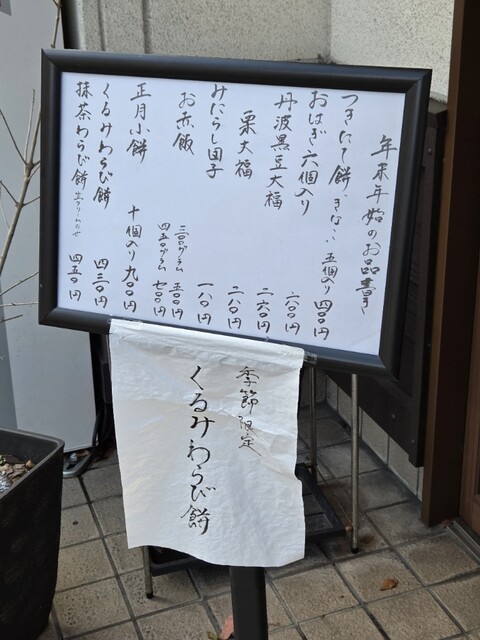 年末年始のお品書き
つきたて餅 きなこ 五個入り 四〇〇円
おはぎ六個入り 六〇〇円
丹波黒豆大福 二六〇円
栗大福 二八〇円
みたらし団子 一八〇円
お赤飯 三〇〇グラム 五〇〇円
四五〇グラム 七〇〇円
正月小餅 十個入り 九〇〇円
くるみわらび餅 四三〇円
抹茶わらび餅 生クリームのせ 四五〇円
季節限定
くるみわらび餅